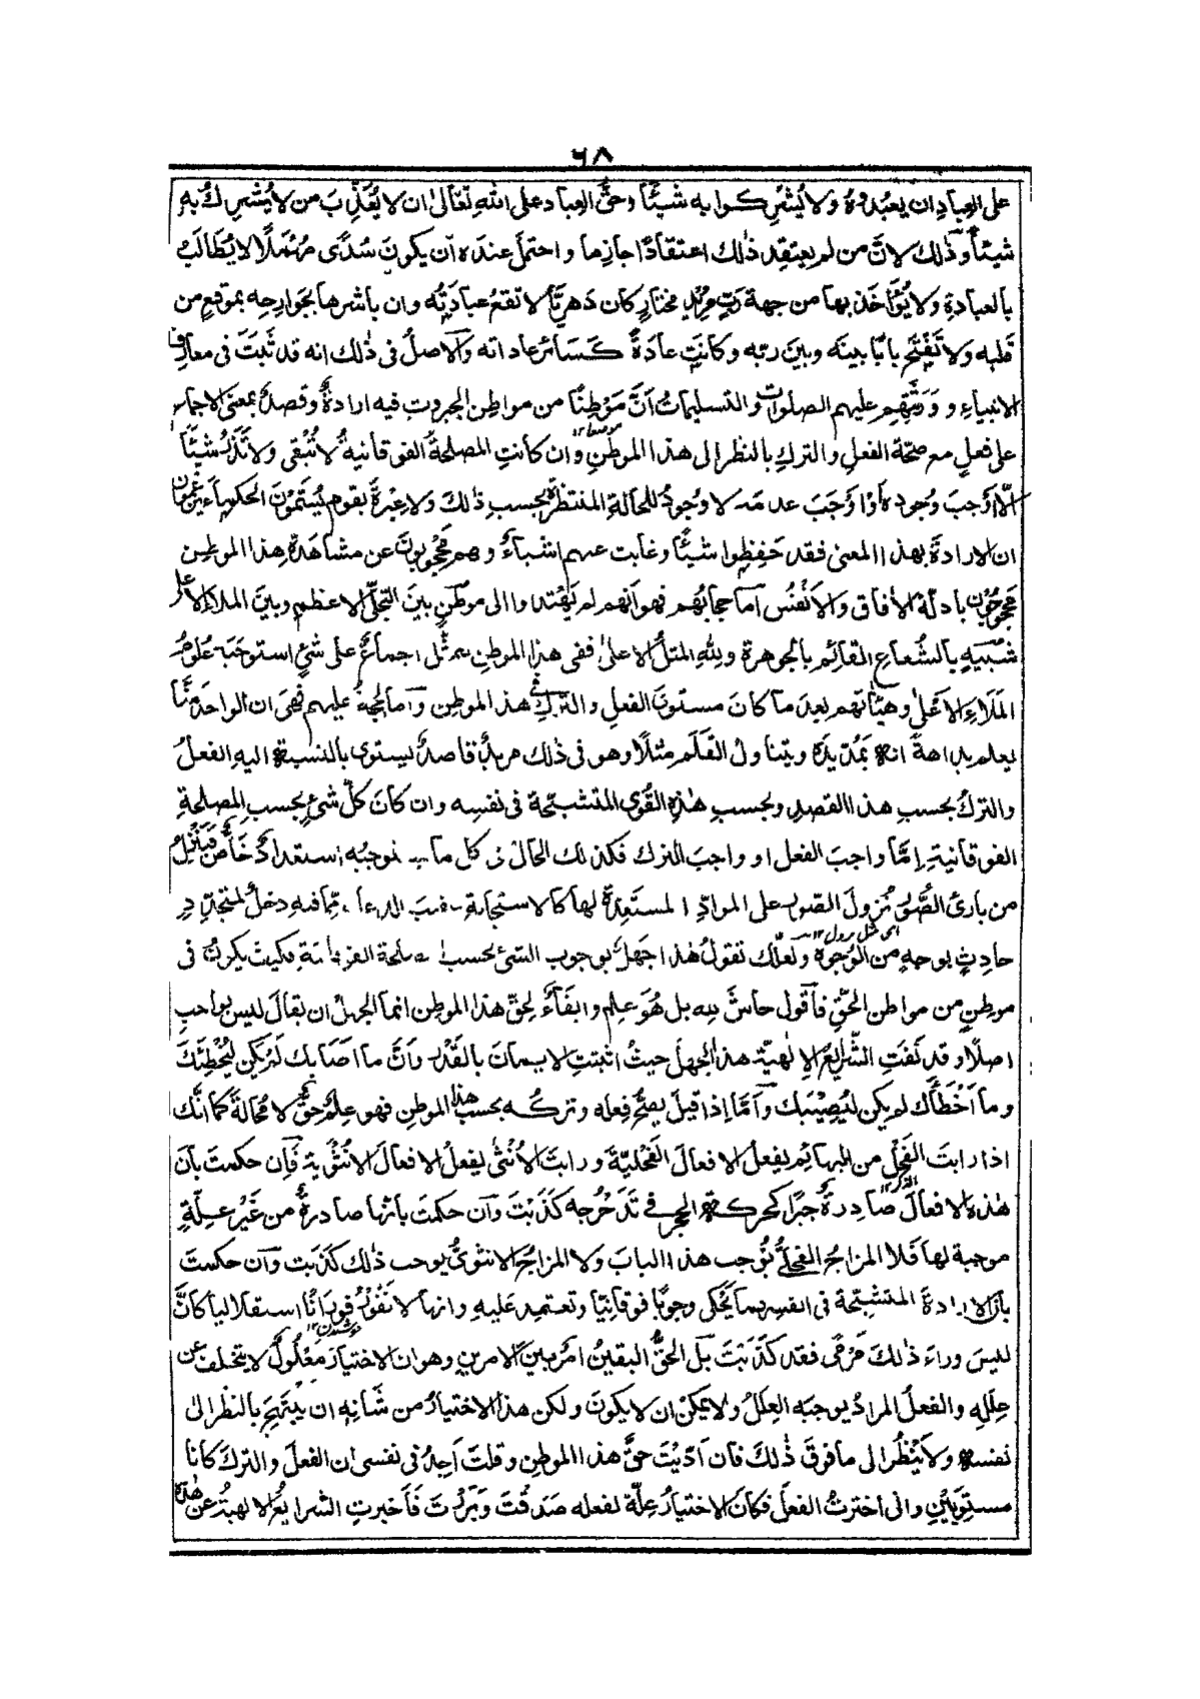 ٦٨
على العباد ان يعبدوهُ ولا يُشرِكوا به شيئًا وحقُّ العباد على اللهِ تعَالىٰ ان لا يُعَذِّبَ من لا يُشرِكُ بِهٖ
شيئًا وذٰلك لانَّ من لم يعتقِد ذٰلك اعتقادًا جازِما واحتملَ عندَه اَن يكونَ سُدًى مُهْمَلًا لا يُطالَبُ
بالعبادةِ ولا يُؤَاخَذ بها من جهة ربٍّ مُرِيْدٍ مختارٍ كان دَهرِيًّا لا تقعُ عبادَتُه وان باشرها بجوارِحِه بموقعٍ من
قلبِه ولا تَفْتَح بابًا بينَه وبينَ ربِّه وكانت عادَةً كَسَائرِ عاداته وَالاصلُ فى ذٰلك انه قد ثَبَتَ فى معارِف
الانبياءِ و وَرَثَتِهِم عليهم الصلوات والتسليمات اَنَّ مَوْطِنًا من مواطِنِ الجبروتِ فيه ارادةٌ وقصدٌ بمعنَى الاجماع
على فعلٍ مع صحّة الفعلِ والتركِ بالنظر الى هذا الموطنِ وان كانتِ المصلحةُ الفوقانيةُ لا تُبْقِى ولا تَذَرُ شيئًا
اِلّا اَوجبَ وُجودهُ اَوْ اَوْجَبَ عدمَه لا وجودَ للحالةِ المنتظرةِ بحسبِ ذٰلكَ ولا عِبْرةَ بقومٍ يُسَمَّوْنَ الحكماءَ يزعُمون
ان الارادةَ بهذا المعنى فقد حَفِظوا شيئًا وغابت عنهم اشياءُ وهم مَحْجُوبونَ عن مشاهَدةِ هذا الموطنِ
مَحجوجُون بادلّة الاٰفاق والاَنْفُس اَما حجابُهُم فهو اَنهم لم يَهْتدوا الى موطنٍ بينَ التجلّى الاعظمِ وبينَ الملاءِ الاعلى
شَبِيْهٍ بالشُعاعِ القائِمِ بالجوهرة ولِلّٰهِ المثلُ الاعلىٰ ففى هذا الموطنِ يتمثّل اجماعٌ على شىءٍ استوجَبَه علومُ
المَلَاءِ الاَعْلىٰ وهيئاتُهم بعدَ ما كان مستوىَ الفعلِ والتركِ فى هذا الموطنِ وَاما الحجةُ عليهم فهىَ ان الواحدَ مِنَّا
يعلم بداهةً انه يَمُدّ يَدَه ويتناولُ القلَم مثلًا وهو فى ذٰلك مريدٌ قاصدٌ يستوى بالنسبة اليهِ الفعلُ
والتركُ بحسبِ هذا القصدِ وبحسبِ هٰذِهِ القُوَى المتشبّحة فى نفسِه وان كانَ كلُّ شىءٍ بحسبِ المصلحةِ
الفوقانيةِ اِمّا واجبَ الفعل او واجبَ الترك فكذلك الحالُ فى كل ما يستوجبُه استعدادٌ خاصٌّ فيَنْزِلُ
من بارئ الصُّوَرِ نُزولَ الصُّوَرِ على الموادِّ المستعِدّةِ لها كالاستجابة عقيبَ الدعاءِ مِمّا فيه دخلٌ لمتجدّدٍ
حادِثٍ بوجهٍ من الوُجوهِ ولعلّك تقولُ هٰذا جهلٌ بوجوب الشئ بحسبِ المصلحة الفوقانية فكيف يكونُ فى
موطنٍ من مواطن الحقِّ فاَقول حاشَ لِلّٰه بل هُوَ علمٌ وايفاءٌ لحقِّ هذا الموطن انما الجهلُ ان يقالَ ليس بواجبٍ
اصلًا وقد نفَتِ الشَّرائِعُ الالٰهيّةُ هذا الجهلَ حيثُ اثبتتِ الايمانَ بالقدَرِ وَاَنَّ ما اَصَابك لم يَكُنْ لِيُخْطِئَكَ
وما اَخْطَأَك لم يكن لِيُصِيْبَك وَاَمَّا اِذا قيلَ يصحُّ فِعله وتركُه بحسب هذا الموطن فهو علمٌ حقٌّ لا مُحالةَ كما انَّك
اذا رايتَ الفَحْلَ من البهائِم يفعلُ الافعالَ الفَحْليّةَ ورايتَ الاُنْثٰى يفعلُ الافعالَ الانثوية فَاِن حكمتَ بانَ
هٰذه الافعالَ صادِرةٌ جبرًا كحركة الحجرِ فى تَدَحْرُجِه كَذَبْتَ وَاِن حكمتَ بانها صادرةٌ من غيرِ عِلّةٍ
موجبة لها فلا المزاجُ الفحلىُّ يُوجب هذا البابَ ولا المزاجُ الانثوىُّ يوجب ذٰلك كَذَبتَ وَاِن حكمتَ
بان الارادةَ المتشبّحة فى انفسِهما تَحْكى وجوبًا فوقانيًا وتعتمد عليهِ وانها لا تفُوْرُ فورانًا استقلاليًا كانَّ
ليس وراءَ ذٰلك مَرْمًى فقد كذَبْتَ بَل الحقُّ اليقينُ امرٌ بينَ الامرينِ وهو ان الاختيارَ معلُولٌ لا يتخلف عن
عِلَلِه والفعلُ المرادُ يوجبه العِلَلُ ولا يمكنُ ان لا يكونَ ولكن هذا الاختيارُ من شانِه ان يبتَهِجَ بالنظرِ الى
نفسه ولا يَنْظُرَ الى ما فوقَ ذٰلكَ فان اَدَّيْتَ حقَّ هذا الموطنِ وقلتَ اَجِدُ فى نفسى ان الفعلَ والتركَ كانا
مستوِيَيْنِ وانى اخترتُ الفعلَ فكانَ الاختيارُ عِلّةً لفعله صَدقتَ وَبَرَرْتَ فاَخبرتِ الشرايعُ الالهيةُ عن هٰذه